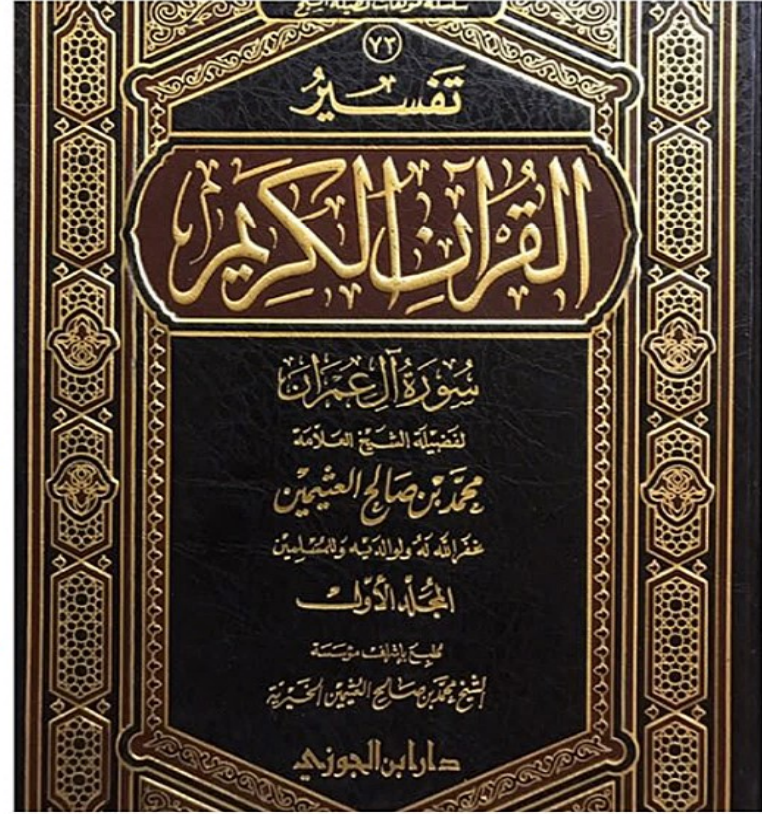 سلسلة مؤلفات فضيلة الشيخ
٧٣
تَفسِيرُ
القُرآنِ الكَرِيمِ
سُورَةُ آلِ عِمْرَان
لفَضِيلَة الشَّيْخ العَلَّامَة
محمّد بن صَالح العثيمين
غفَرَ الله لَهُ ولوالدَيه وَللمُسْلِمِين
المُجَلَّد الأَوّل
طُبِعَ بإشراف مؤسّسَة
الشّيخ محمَّد بن صَالح العثيمين الخَيريّة
دار ابن الجوزي